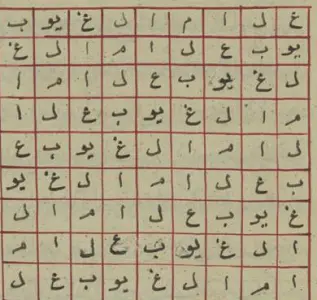 ع ل ا م ا ل غ يو ب
يو ب ع ل ا م ا ل غ
ل غ يو ب ع ل ا م ا
م ا ل غ يو ب ع ل ا
ل ا م ا ل غ يو ب ع
ب ع ل ا م ا ل غ يو
غ يو ب ع ل ا م ا ل
ا ل غ يو ب ع ل ا م
ا م ا ل غ يو ب ع ل